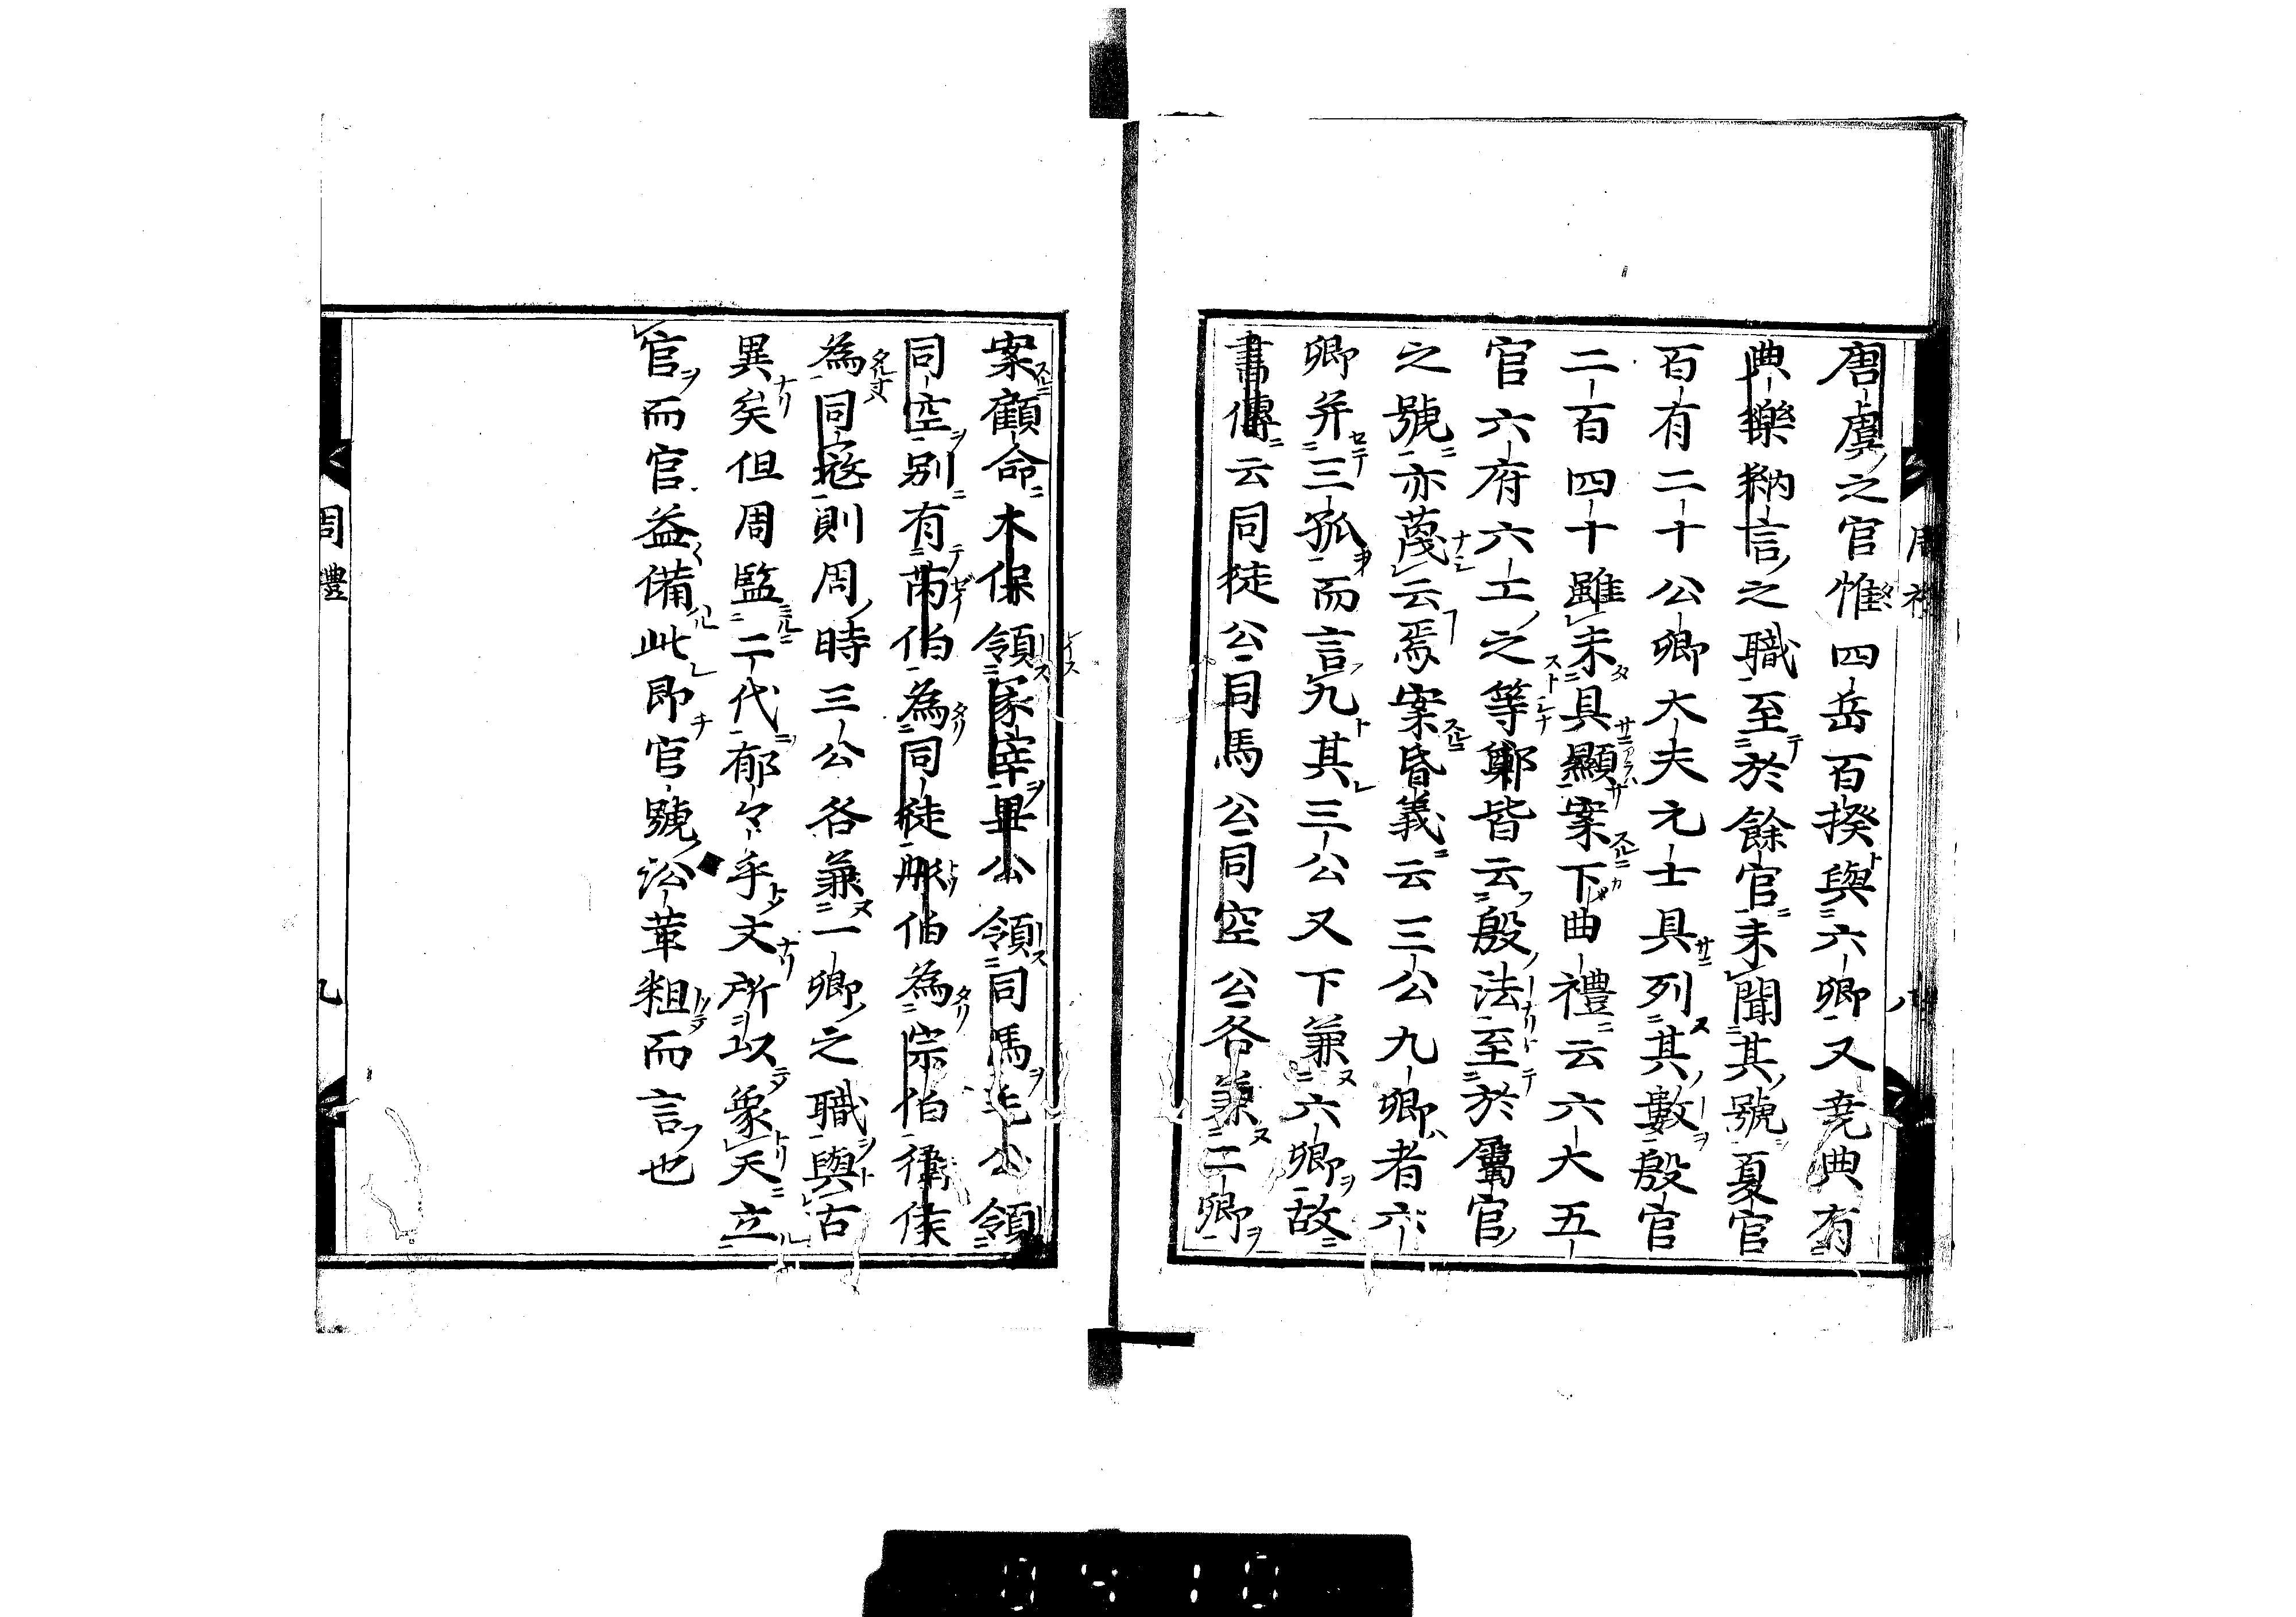 唐虞之官惟四岳百揆與六卿又堯典有
典樂納言之職至於餘官未聞其號夏官
百有二十公卿大夫元士具列其數殷官
二百四十雖未具顯案下曲禮云六大五
官六府六工之等鄭皆云殷法至於屬官
之號亦蔑云焉案昏義云三公九卿者六
卿并三孤而言九其三公又下兼六卿故
書傳云司徒公司馬公司空公各兼二卿
案顧命太保領冢宰畢公領司馬毛公領
司空別有芮伯為司徒彤伯為宗伯衛侯
為司寇則周時三公各兼一卿之職與古
異矣但周監二代郁々乎文所以象天立
官而官益備此即官號訟革粗而言也
周禮
九
八
0410